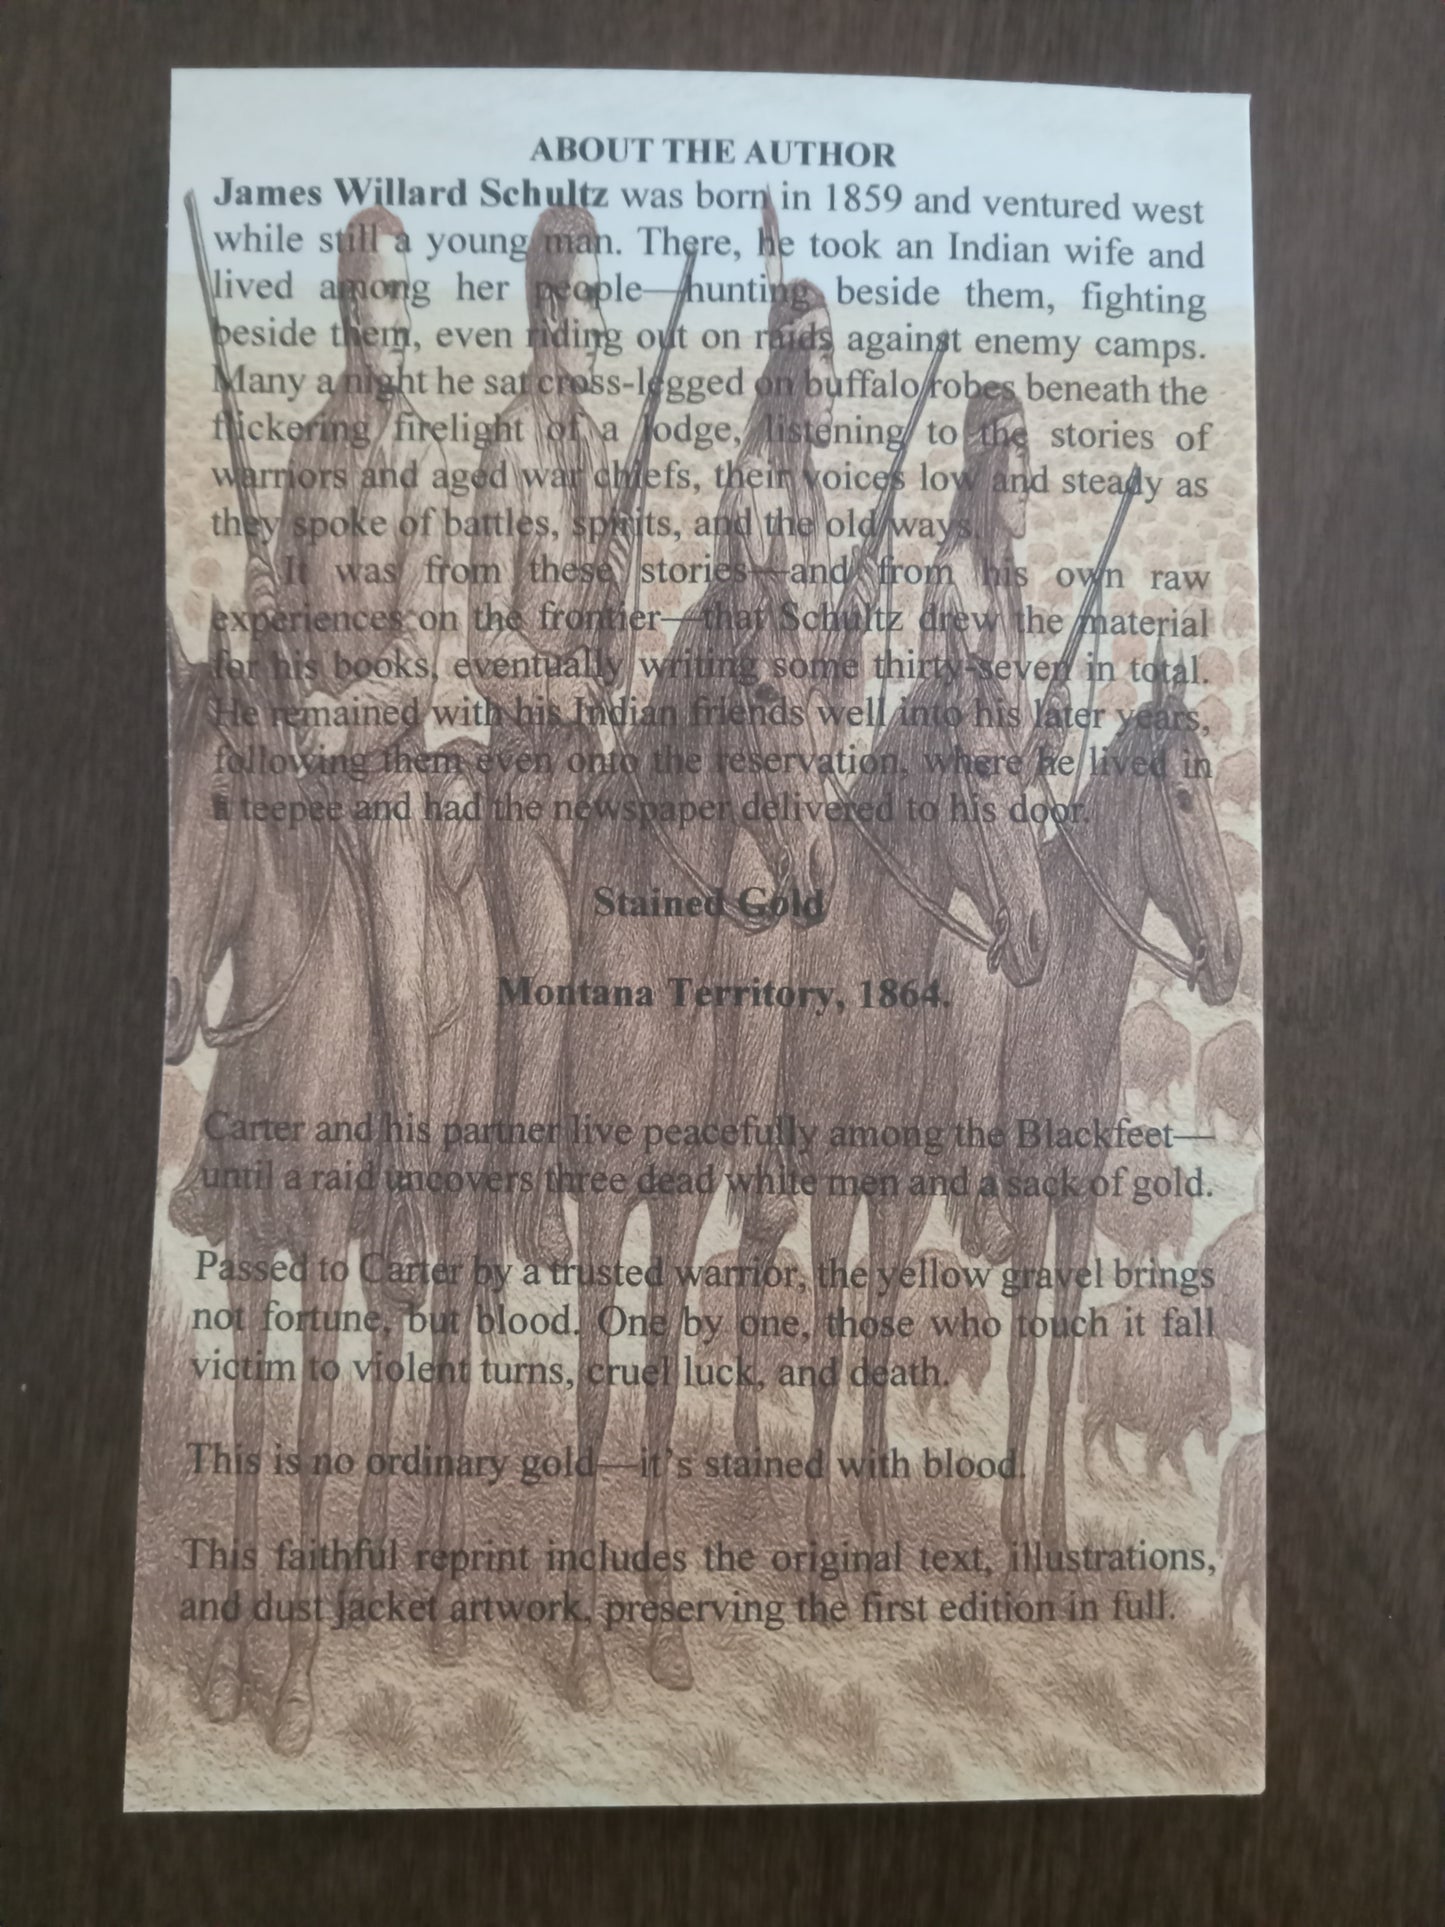 ABOUT THE AUTHOR
James Willard Schultz was born in 1859 and ventured west
while still a young man. There, he took an Indian wife and
lived among her people—hunting beside them, fighting
beside them, even riding out on raids against enemy camps.
Many a night he sat cross-legged on buffalo robes beneath the
flickering firelight of a lodge, listening to the stories of
warriors and aged war chiefs, their voices low and steady as
they spoke of battles, spirits, and the old ways.
It was from these stories—and from his own raw
experiences on the frontier—that Schultz drew the material
for his books, eventually writing some thirty-seven in total.
He remained with his Indian friends well into his later years,
following them even onto the reservation, where he lived in
a teepee and had the newspaper delivered to his door.
Stained Gold
Montana Territory, 1864.
Carter and his partner live peacefully among the Blackfeet—
until a raid uncovers three dead white men and a sack of gold.
Passed to Carter by a trusted warrior, the yellow gravel brings
not fortune, but blood. One by one, those who touch it fall
victim to violent turns, cruel luck, and death.
This is no ordinary gold—it's stained with blood.
This faithful reprint includes the original text, illustrations,
and dust jacket artwork, preserving the first edition in full.